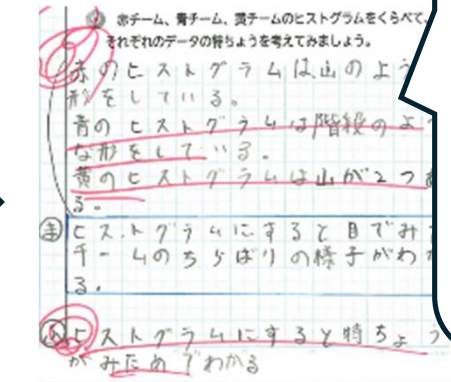 赤チーム、青チーム、黄チームのヒストグラムをくらべて、
それぞれのデータの特ちょうを考えてみましょう。
赤のヒストグラムは山のよう
形をしている。
青のヒストグラムは階段のよ
な形をしている。
黄のヒストグラムは山が2つ
る。
ま ヒストグラムにすると目でみ
チームのちらばりの様子がわ
る。
ふ ヒストグラムにすると特ちょう
がみためでわかる